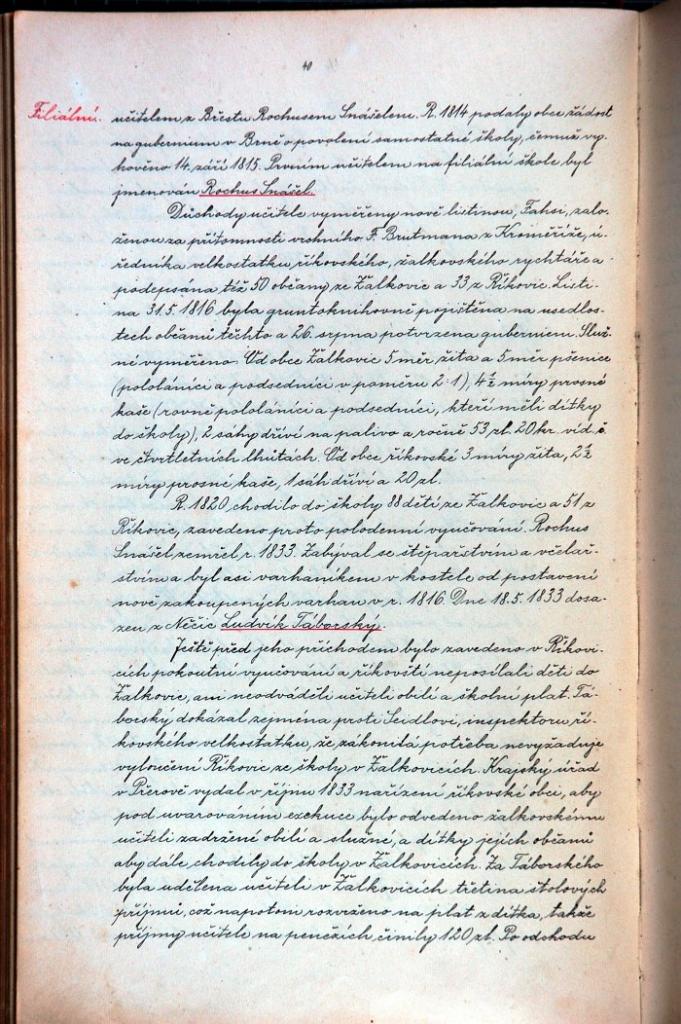 Filiální.
učitelem z Břestu Rochusem Snášelem. R. 1814 podaly obce žádost
na gubernium v Brně o povolení samostatné školy, čemuž vy-
hověno 14. září 1815. Prvním učitelem na filiální škole byl
jmenován Rochus Snášel.
Důchody učitele vyměřeny nově listinou, Fahsi, zalo-
ženou za přítomnosti vrchního F. Brutmana z Kroměříže, ú-
ředníka velkostatku říkovského, žalkovského rychtáře a
podepsána též 50 občany ze Žalkovic a 33 z Říkovic. Listi-
na 31. 5. 1816 byla gruntoknihovně pojištěna na usedlos-
tech občanů těchto a 26. srpna potvrzena guberniem. Služ-
né vyměřeno: Od obce Žalkovic 5 měr žita a 5 měr pšenice
(pololáníci a podsedníci v poměru 2:1), 4½ míry prosné
kaše (rovně pololáníci a podsedníci, kteří měli dítky
do školy), 2 sáhy dříví na palivo a ročně 53 zl. 20 kr. víd. č.
ve čtvrtletních lhůtách. Od obce říkovské 3 míry žita, 2½
míry prosné kaše, 1 sáh dříví a 20 zl.
R. 1820 chodilo do školy 88 dětí ze Žalkovic a 51 z
Říkovic, zavedeno proto polodenní vyučování. Rochus
Snášel zemřel r. 1833. Zabýval se štěpařstvím a včelař-
stvím a byl asi varhaníkem v kostele od postavení
nově zakoupených varhan v r. 1816. Dne 18. 5. 1833 dosa-
zen z Něčic Ludvík Táborský.
Ještě před jeho příchodem bylo zavedeno v Říkovi-
cích pokoutní vyučování a říkovští neposílali děti do
Žalkovic, ani neodváděli učiteli obilí a školní plat. Tá-
borský dokázal zejména proti Seidlovi, inspektoru ří-
kovského velkostatku, že zákonitá potřeba nevyžaduje
vyloučení Říkovic ze školy v Žalkovicích. Krajský úřad
v Přerově vydal v říjnu 1833 nařízení říkovské obci, aby
pod uvarováním exekuce bylo odvedeno žalkovskému
učiteli zadržené obilí a služné, a dítky jejích občanů
aby dále chodily do školy v Žalkovicích. Za Táborského
byla udělena učiteli v Žalkovicích třetina štolových
příjmů, což napotom rozvrženo na plat z dítka, takže
příjmy učitele na penězích činily 120 zl. Po odchodu